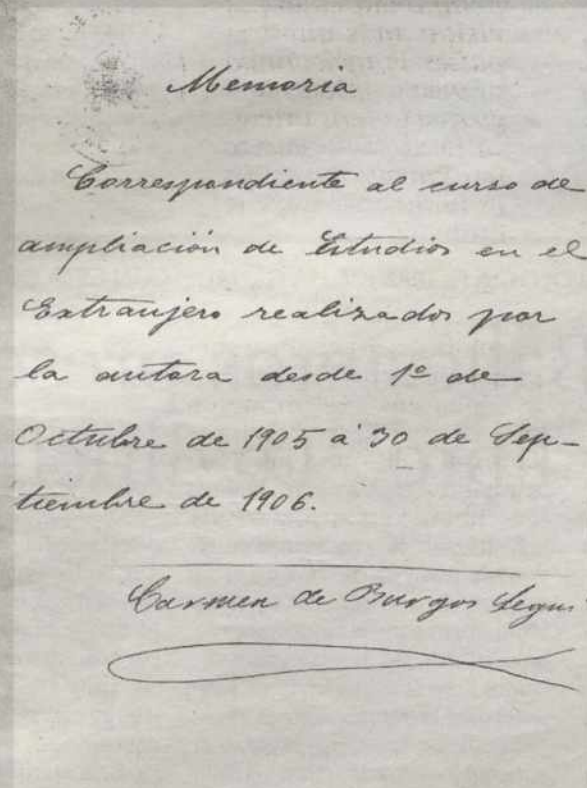 Memoria
Correspondiente al curso de
ampliación de Estudios en el
Extranjero realizados por
la autora desde 1º de
Octubre de 1905 á 30 de Sep-
tiembre de 1906.
Carmen de Burgos Seguí